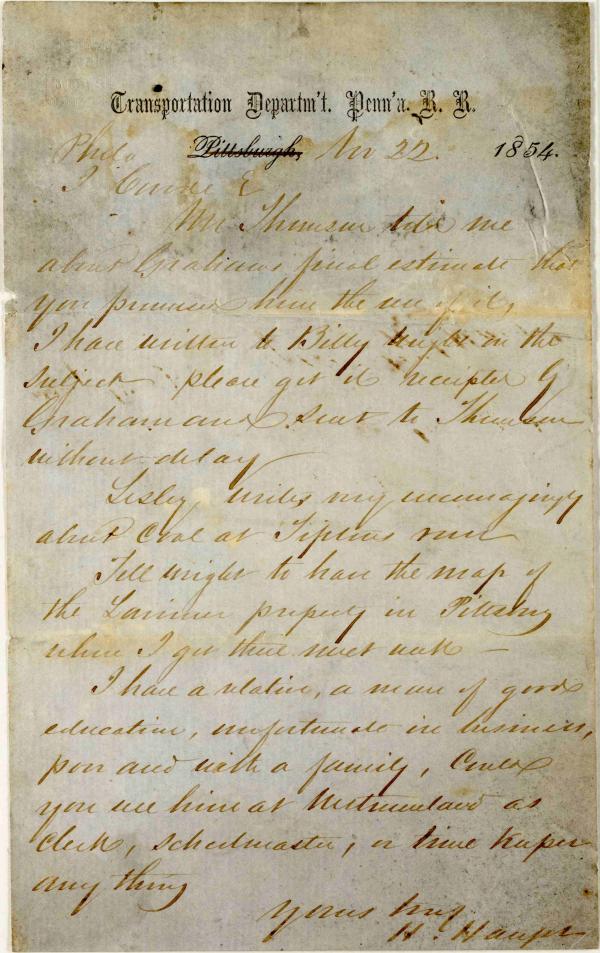 Transportation Departm't. Penn'a. R. R.
Phila Pittsburgh, Nov 22. 1854.
Mr Thomson told me
about Grahams final estimate that
you promised have the use of it,
I have written to Billy Wright on the
subject please get it receipted by
Graham and sent to Thomson
without delay
Lesley writes very encouragingly
about Coal at Tiptons run
Tell Wright to have the map of
the Larimer property in Pittsburg
when I get there next week –
I have a relative, a man of good
education, unfortunate in business,
poor and with a family, Could
you use him at Westmoreland as
clerk, schoolmaster, or time keeper
any thing
Yours truly
H. Haupt